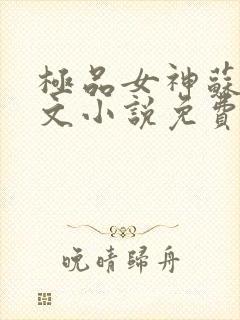 極品女神蘇
文小說免費
晚晴歸舟